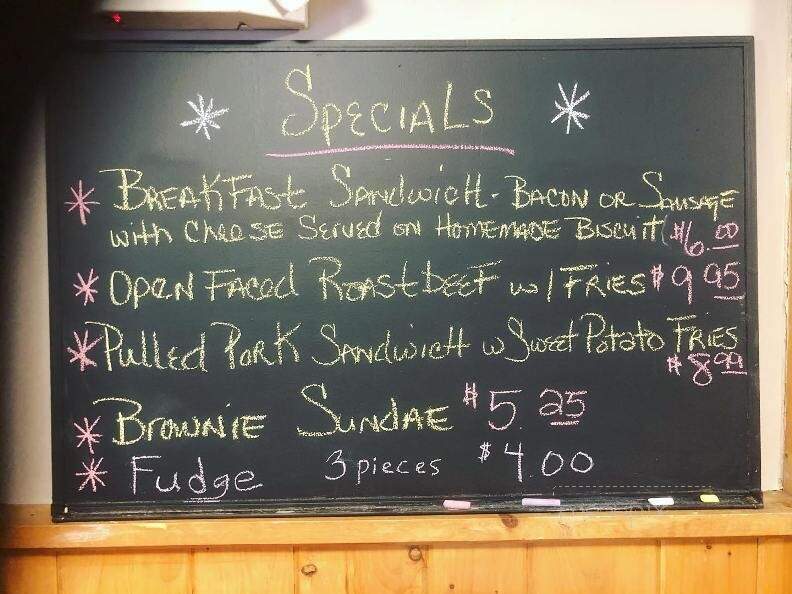 * SPECIALS *
* BREAKFAST SANDWICH - BACON OR SAUSAGE
WITH CHEESE SERVED ON HOMEMADE BISCUIT $6.00
* OPEN FACED ROAST BEEF W/ FRIES $9.95
* Pulled Pork SANDWICH w Sweet Potato FRIES
$8.99
* BROWNIE SUNDAE $5.25
* Fudge 3 pieces $4.00